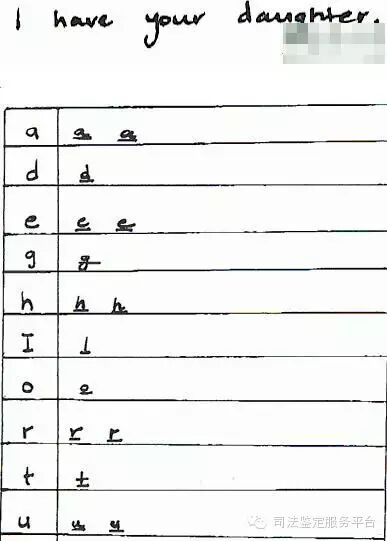 I have your daughter.
a a a
d d
e e e
g g
h h h
I I
o o
r r r
t t
u u u
司法鉴定服务平台